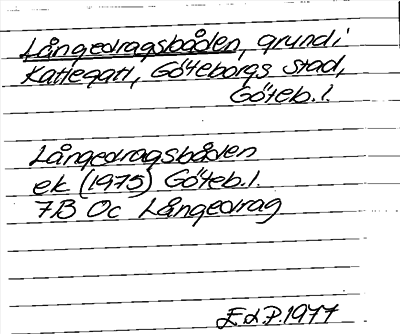 Långedragsbåden, grund i
Kattegatt, Göteborgs stad,
Göteb. l.
Långedragsbåden
ek (1975) Göteb. l.
7B Oc Långedrag
E d P. 1977